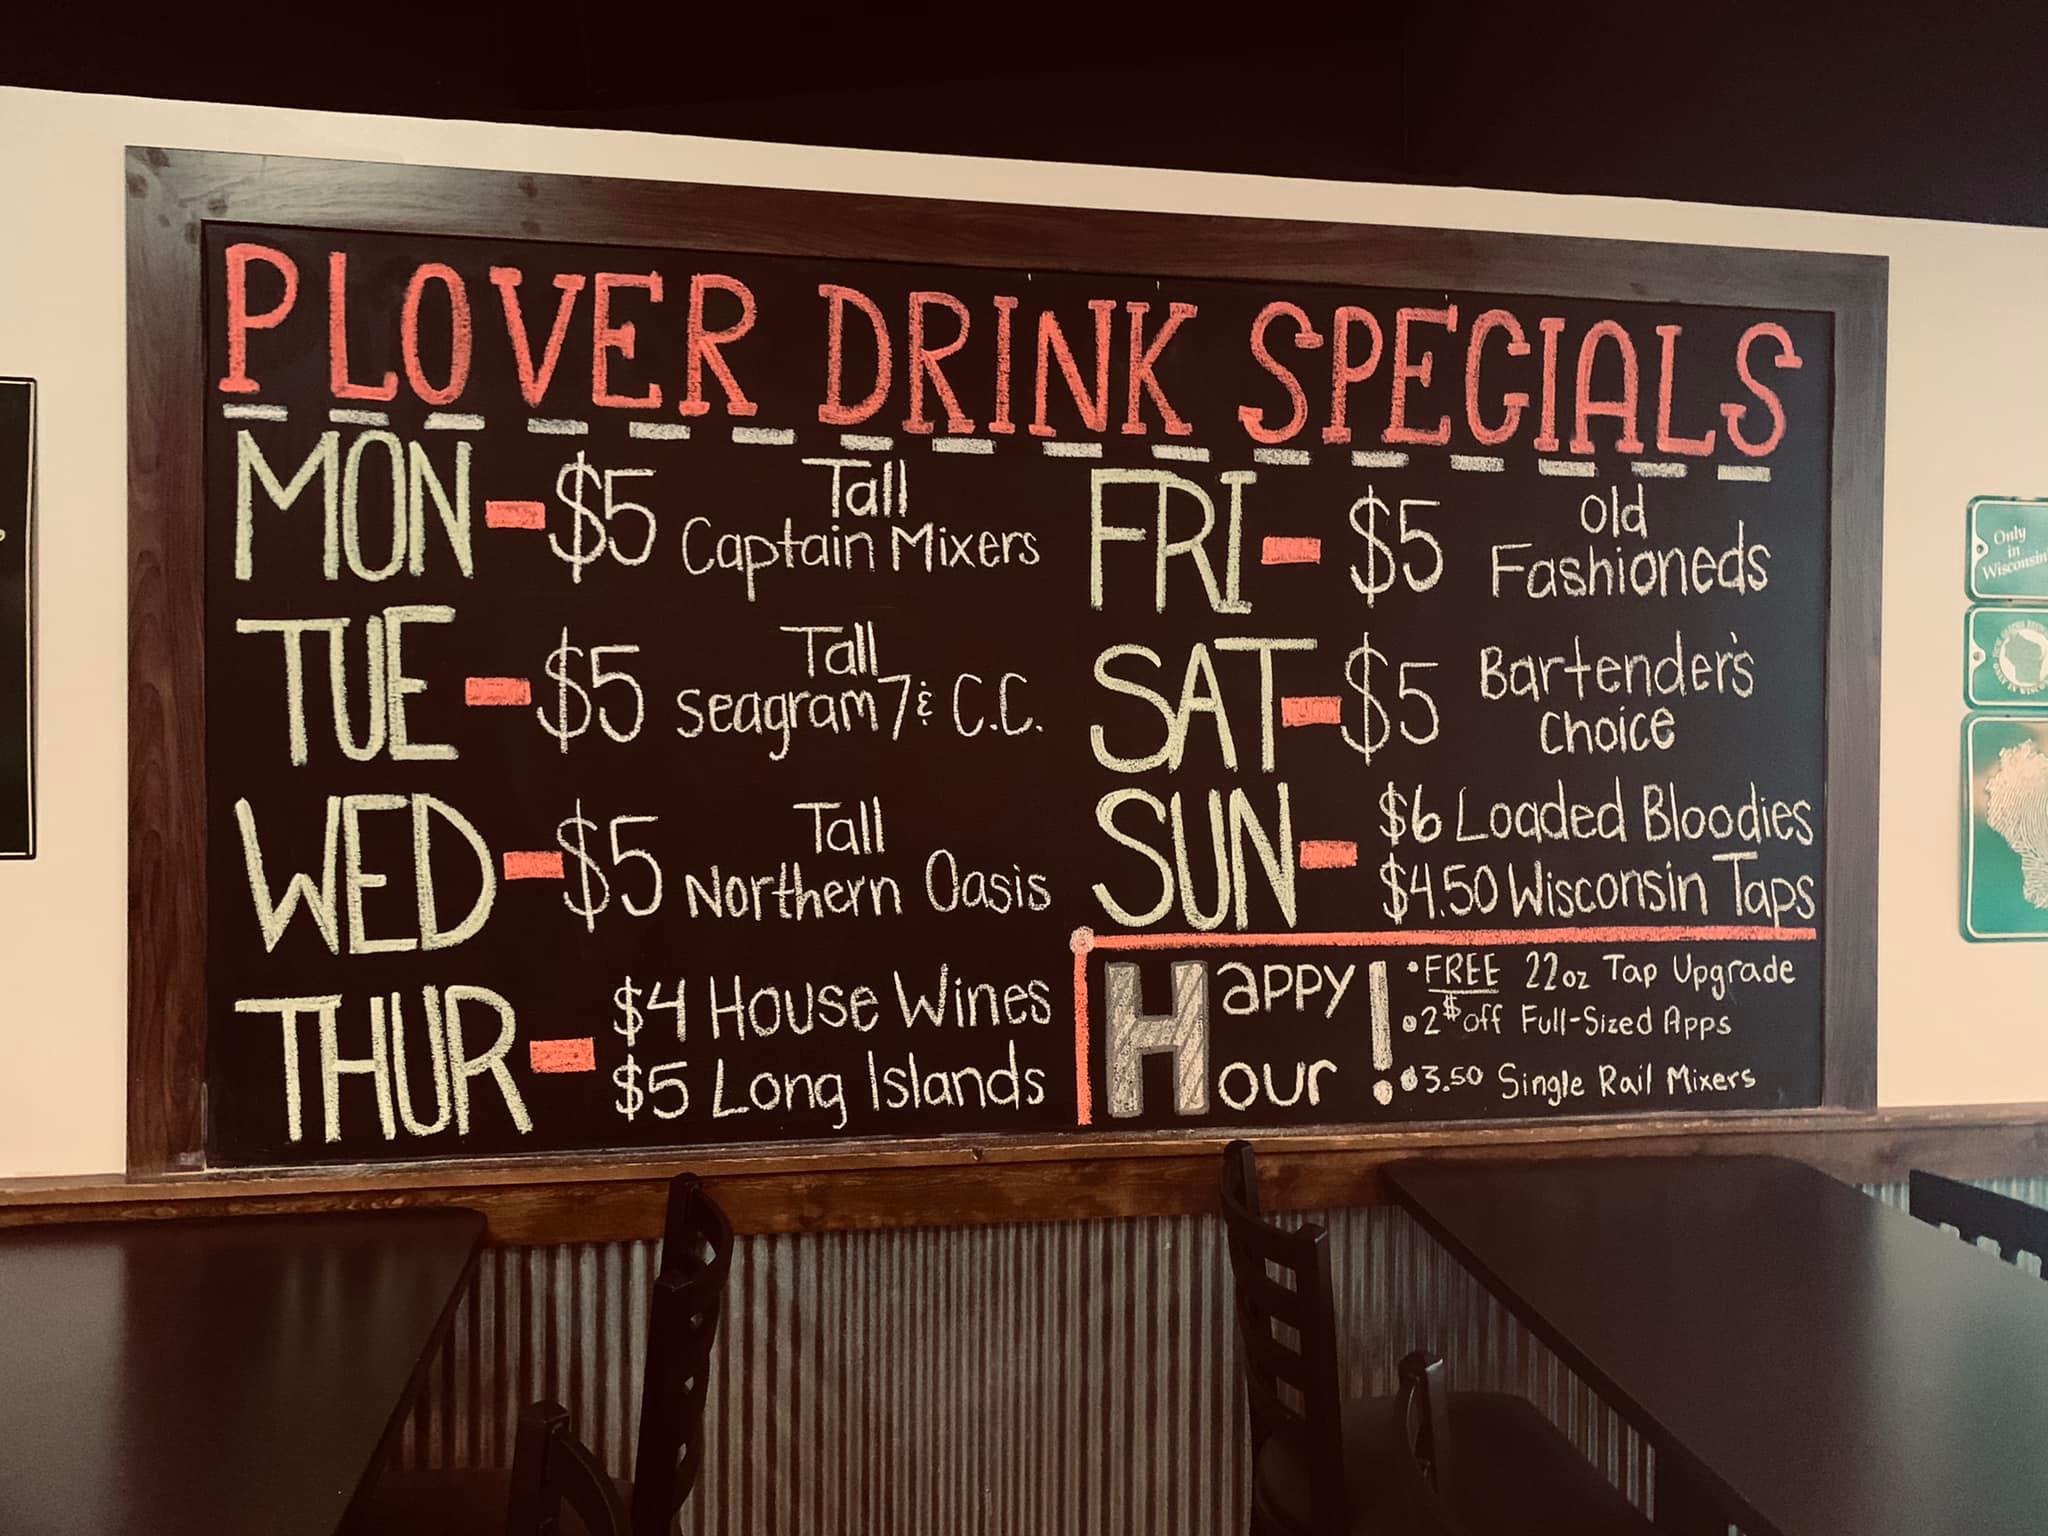 PLOVER DRINK SPECIALS
MON - $5 Tall
Captain Mixers
TUE - $5 Tall
Seagram 7 & C.C.
WED - $5 Tall
Northern Oasis
THUR - $4 House Wines
$5 Long Islands
FRI - $5 Old
Fashioneds
SAT - $5 Bartender's
Choice
SUN - $6 Loaded Bloodies
$4.50 Wisconsin Taps
Happy
Hour!
• FREE 22oz Tap Upgrade
• 2$ off Full-Sized Apps
• $3.50 Single Rail Mixers
Only
in
Wisconsin